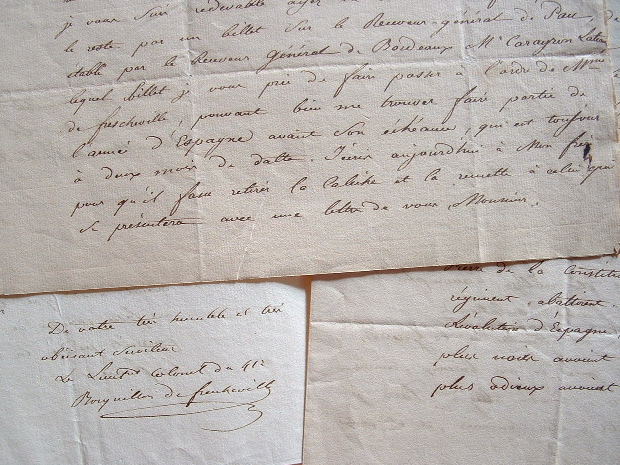 je vous suis redevable
le reste par un billet sur le Receveur-général de Pau,
établi par le Receveur Général de Bordeaux Mr Carayron Latour
lequel billet je vous prie de faire passer à l'ordre de Mme
de frescheville, pouvant bien me trouver faire partie de
l'armée d'Espagne avant son échéance, qui est toujours
à deux mois de datte. J'écris aujourd'hui à Mon frère
pour qu'il fasse retirer la Caleche et la remette à celui qui
se présentera avec une lettre de vous, Monsieur.
De votre très humble et très
obéissant Serviteur
Le Lieut Colonel du 41e
Borquillon de frescheville
de la Constitu
régiment, abattirent
Révolution d'Espagne,
plus noirs avoient
plus odieux avoient